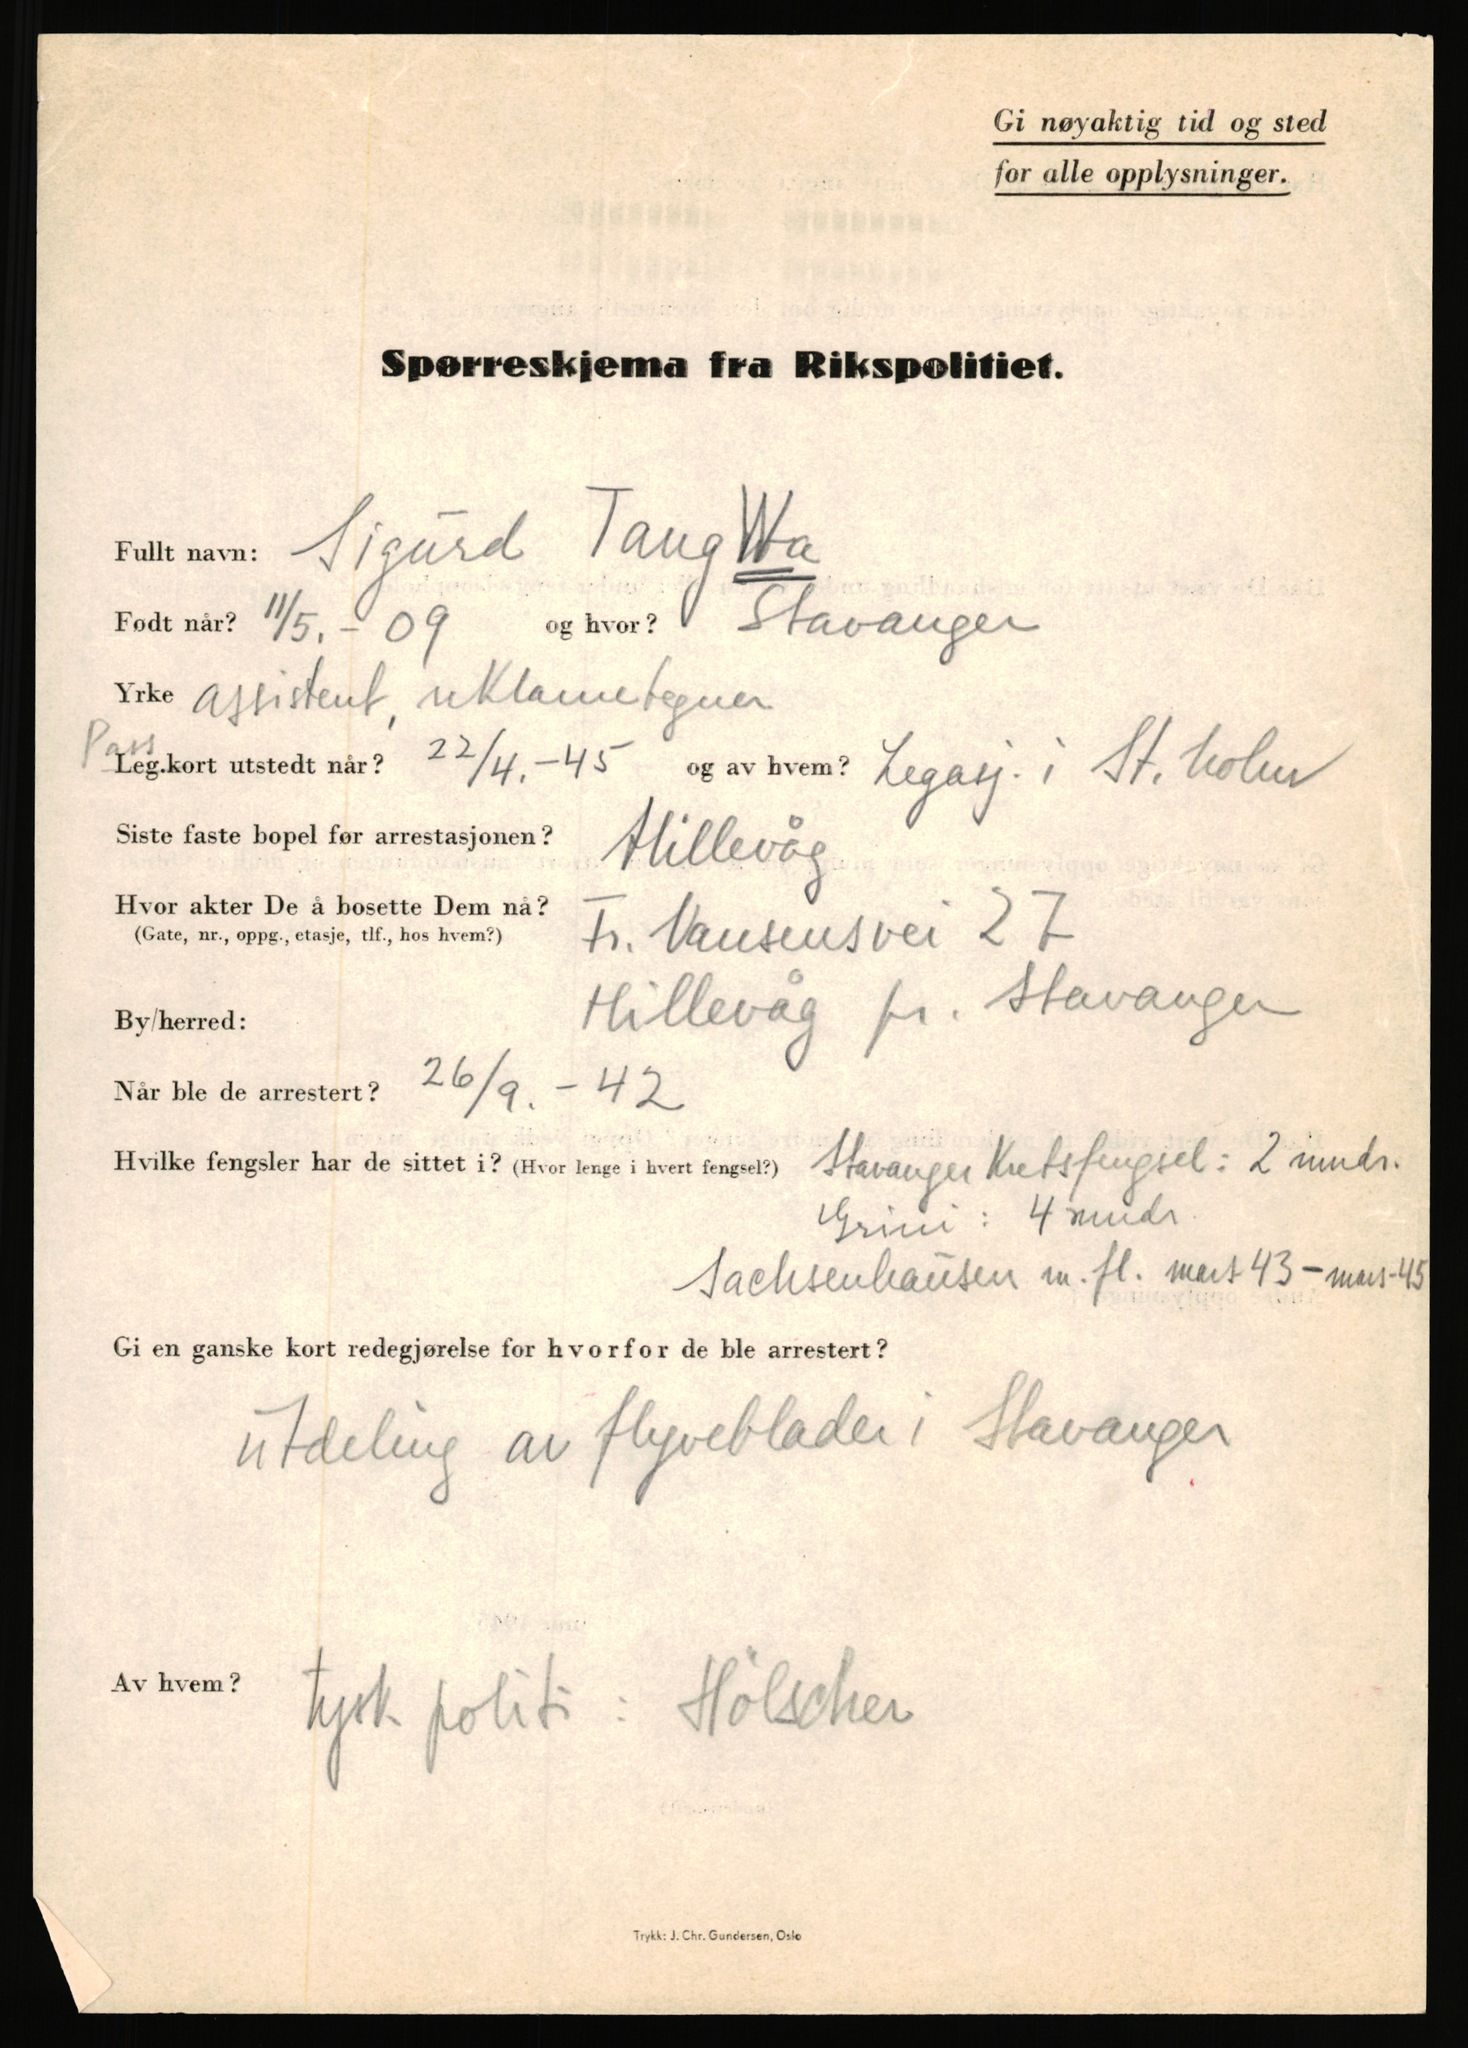 Gi nøyaktig tid og sted
for alle opplysninger.
Spørreskjema fra Rikspolitiet.
Fullt navn: Sigurd Tang Wa
Født når? 11/5.- 09 og hvor? Stavanger
Yrke assistent, reklametegner
Pass
Leg.kort utstedt når? 22/4.-45 og av hvem? Legasj. i St.holm
Siste faste bopel før arrestasjonen? Hillevåg
Hvor akter De å bosette Dem nå? Fr. Nansensvei 27
(Gate, nr., oppg., etasje, tlf., hos hvem?)
By/herred: Hillevåg pr. Stavanger
Når ble de arrestert? 26/9.- 42
Hvilke fengsler har de sittet i? (Hvor lenge i hvert fengsel?) Stavanger Kretsfengsel: 2 mndr.
Grini: 4 mndr.
Sachsenhausen m. fl. mars 43 - mars-45
Gi en ganske kort redegjørelse for hvorfor de ble arrestert?
Utdeling av flyveblader i Stavanger
Av hvem? tysk politi : Hölscher
Trykk: J. Chr. Gundersen, Oslo